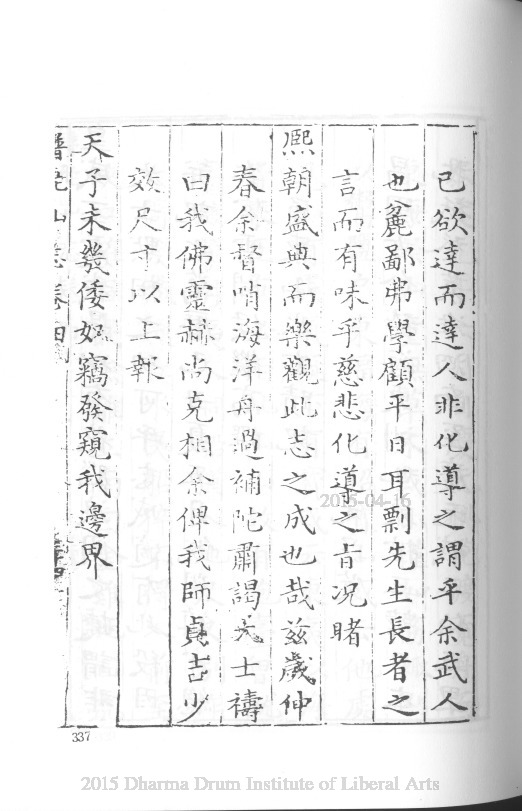 己欲達而達人非化導之謂乎余武人
也麄鄙弗學顧平日耳剽先生長者之
言而有味乎慈悲化導之旨况睹
熈朝盛典而樂觀此志之成也哉茲歲仲
春余督哨海洋舟過補陀肅謁大士禱
曰我佛靈赫尚克相余俾我師貞吉少
效尺寸以上報
天子未幾倭奴竊發窺我邊界
普陀山志卷四
337
2015-04-16
2015 Dharma Drum Institute of Liberal Arts